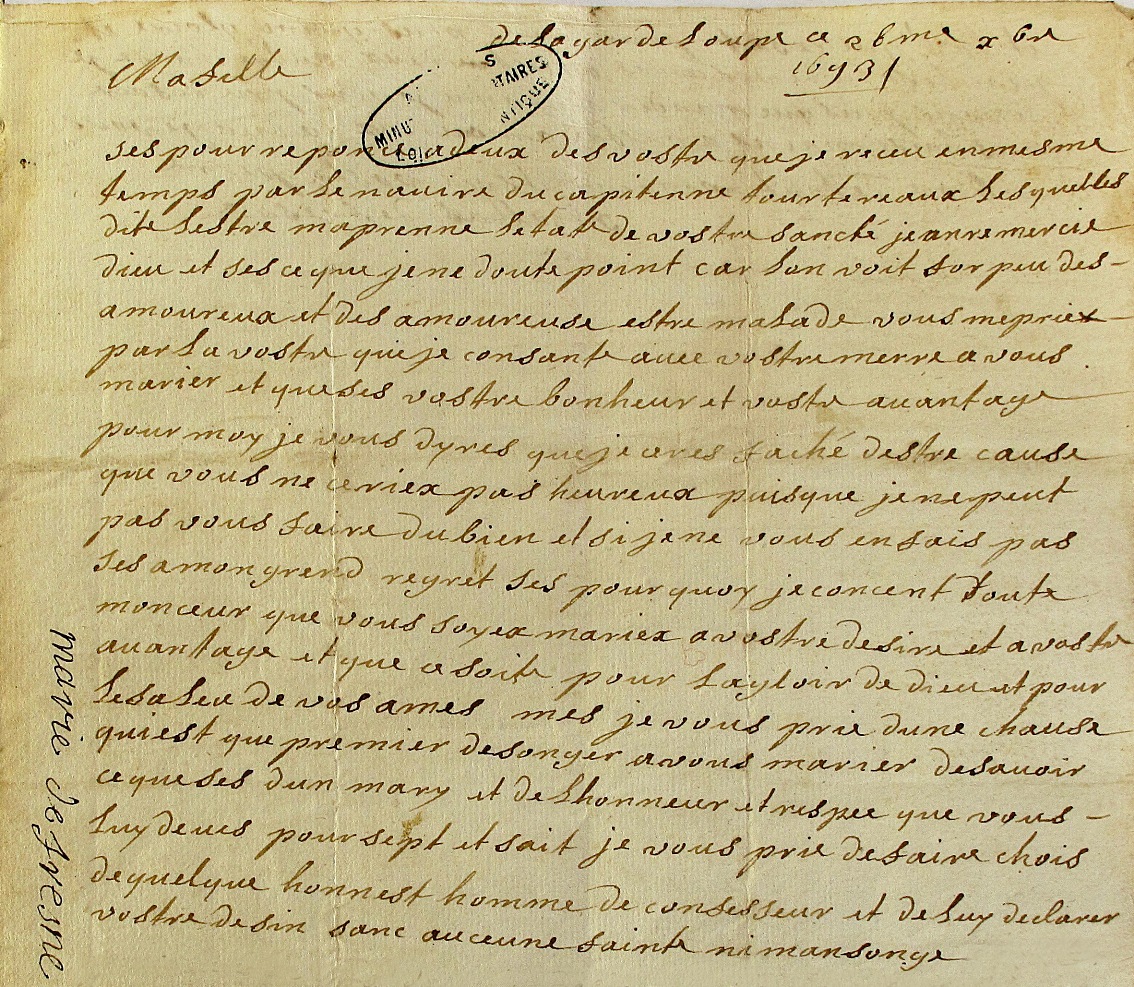 de Lagardeloupe ce 26me xbre
1693
Ma fille
MINU TAIRES
NTIQUE
ses pour reponce a deux des vostre que je receu en mesme
temps par le navire du capitenne tourtereaux lesquelles
dite lestre maprenne letat de vostre sancté je an remercie
dieu et ses ce que je ne doute point car lon voit for peu des
amoureux et des amoureuse estre malade vous me priex
par la vostre que je consante avec vostre merre a vous
marier et que ses vostre bonheur et vostre avantage
pour moy je vous dyres que je ceres faché destre cause
que vous ne ceriex pas heureux puisque je ne peut
pas vous faire du bien et si je ne vous en fais pas
ses a mon grend regret ses pourquoy je concent toute
monceur que vous soyex mariex a vostre desire et a vostre
avantage et que ce soite pour la gloir de dieu et pour
le saleu de vos ames mes je vous prie dune chause
qui est que premier de songer a vous marier de savoir
ce que ses dun mary et de lhonneur et respec que vous
luy deves pour sept et fait je vous prie de faire chois
de quelque honnest homme de confesseur et de luy declarer
vostre desin sanc auceune fainte ni mansonge
marie defresne